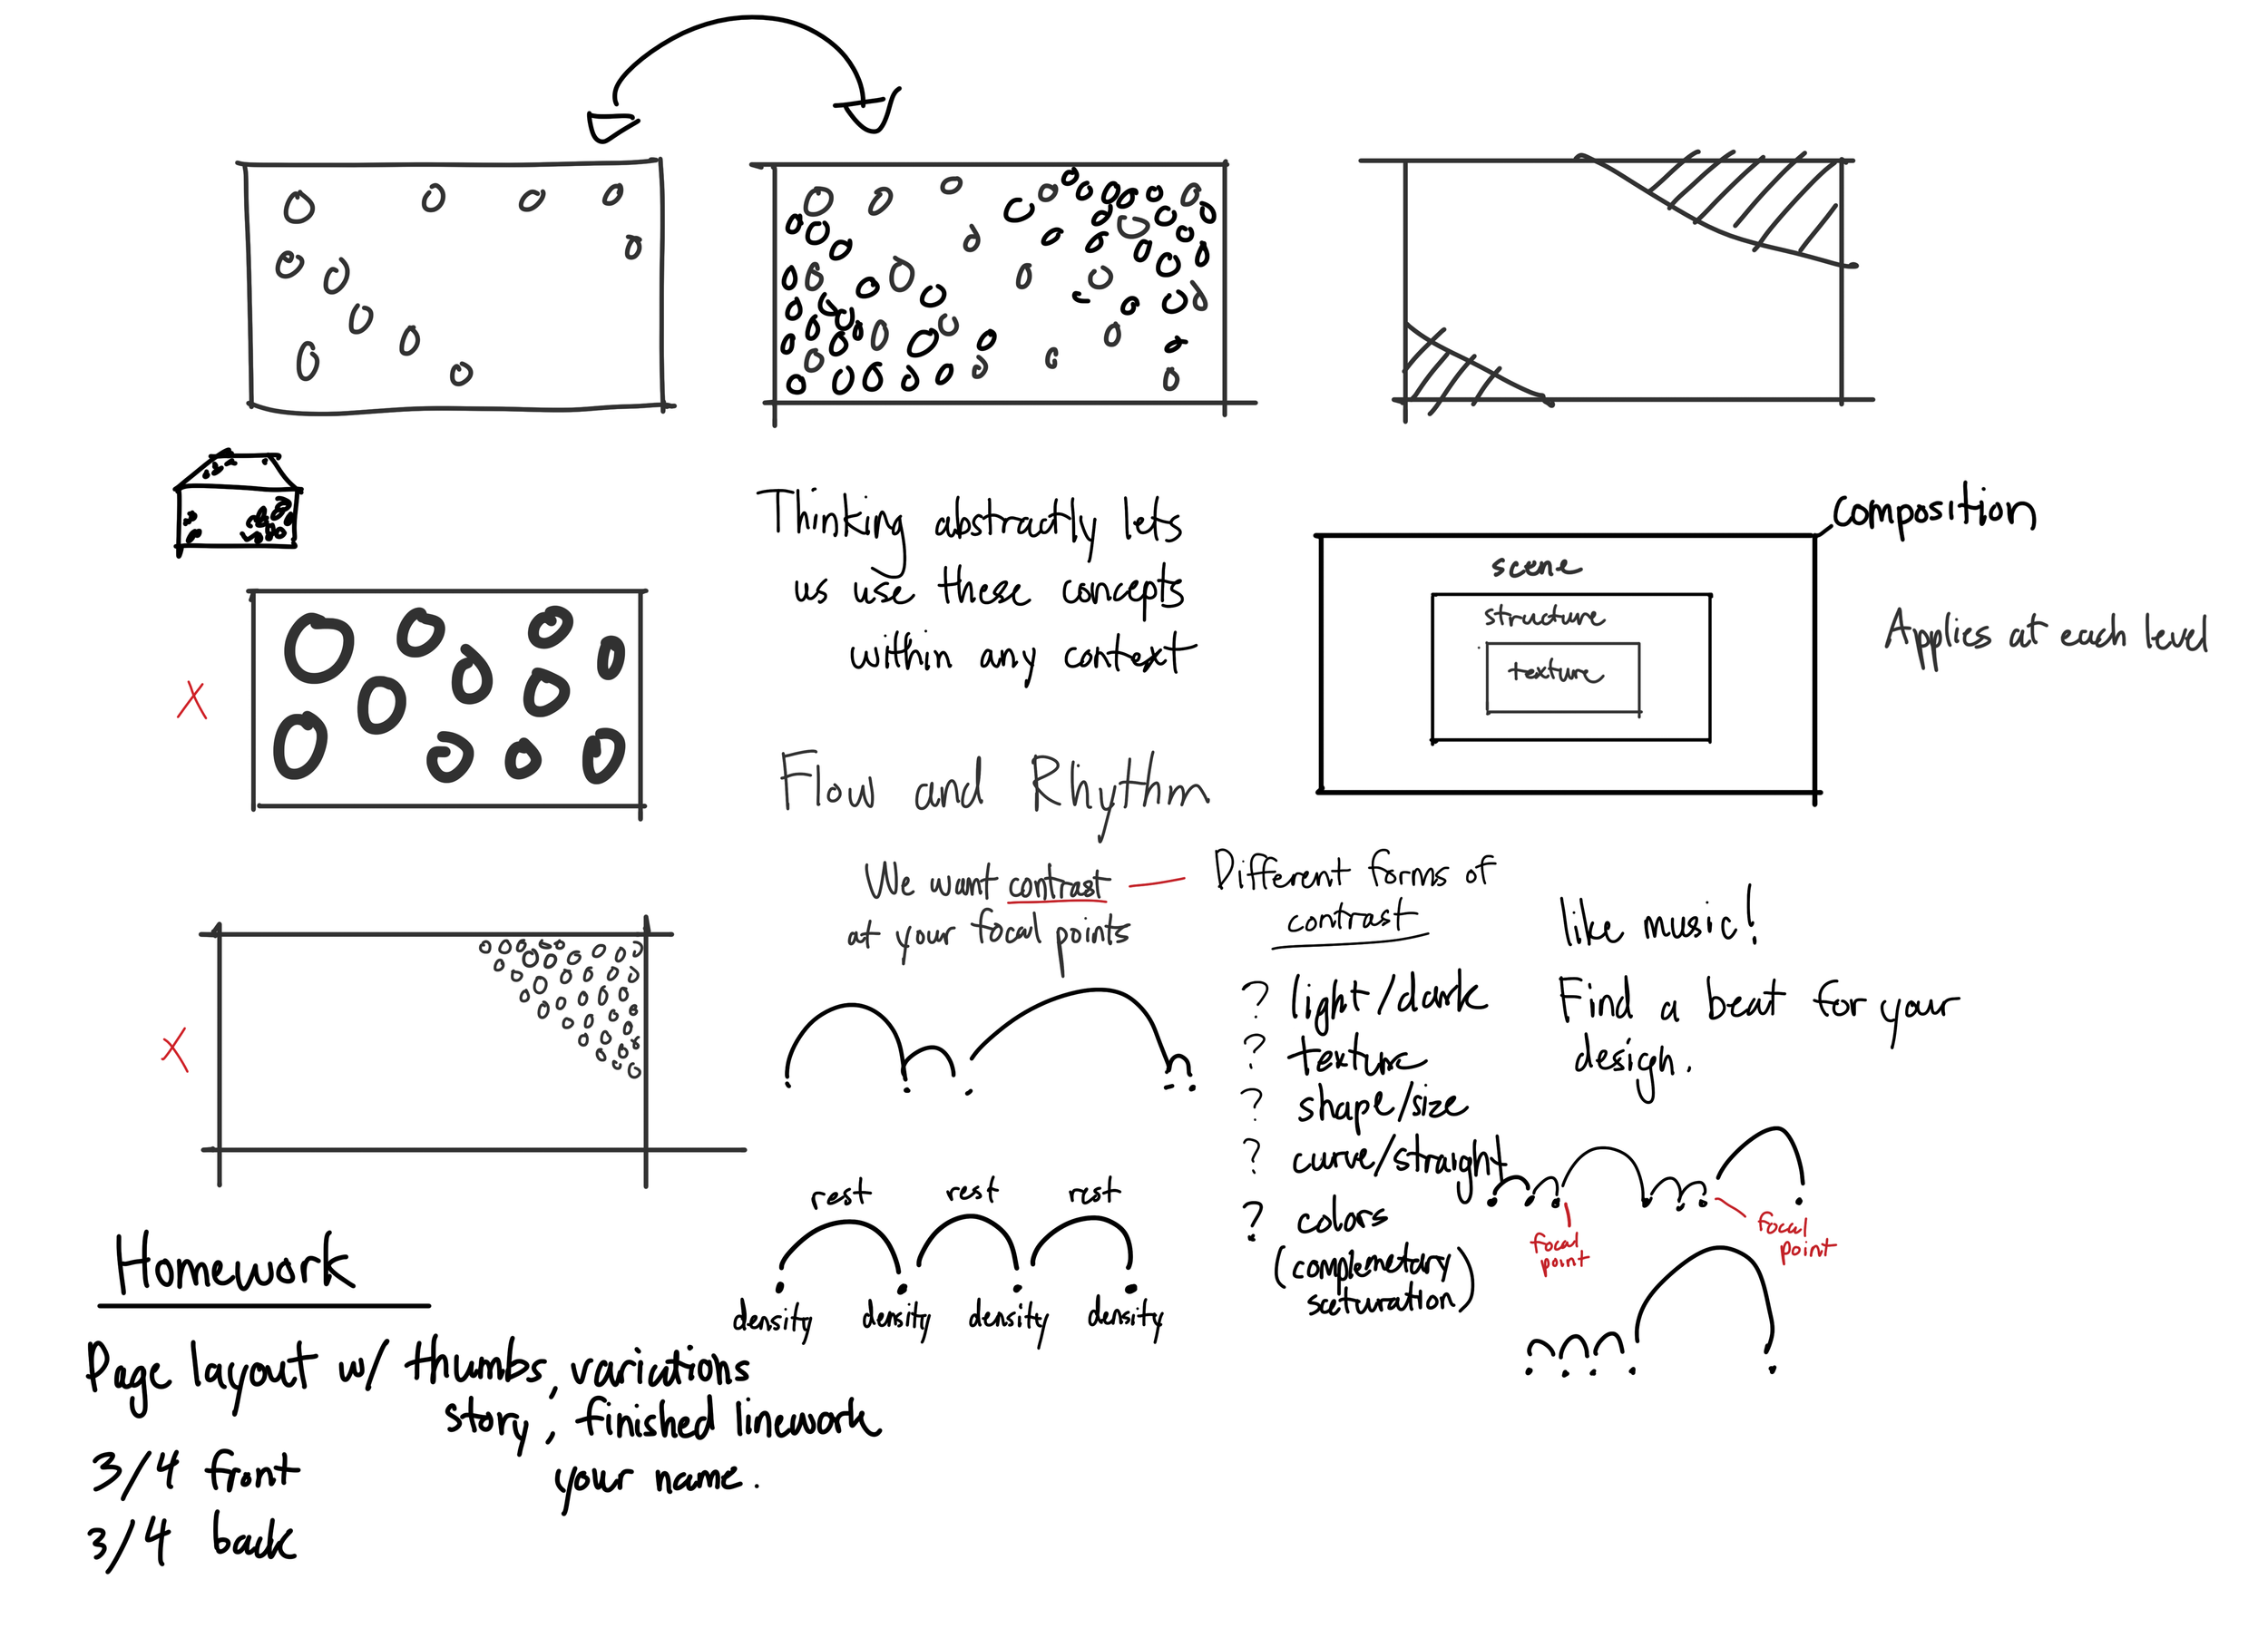 Thinking abstractly lets
us use these concepts
within any context
composition
scene
structure
texture
Applies at each level
Flow and Rhythm
We want contrast
at your focal points
Different forms of
contrast
? light/dark
? texture
? shape/size
? curve/straight
? colors
(complemetary
saturation)
like music!
Find a beat for your
design.
focal
point
focal
point
rest
rest
rest
density
density
density
density
Homework
Page layout w/ thumbs, variations
story, finished linework
your name.
3/4 front
3/4 back